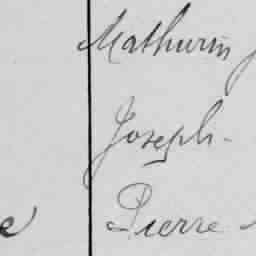 Mathurin
Joseph-
Pierre